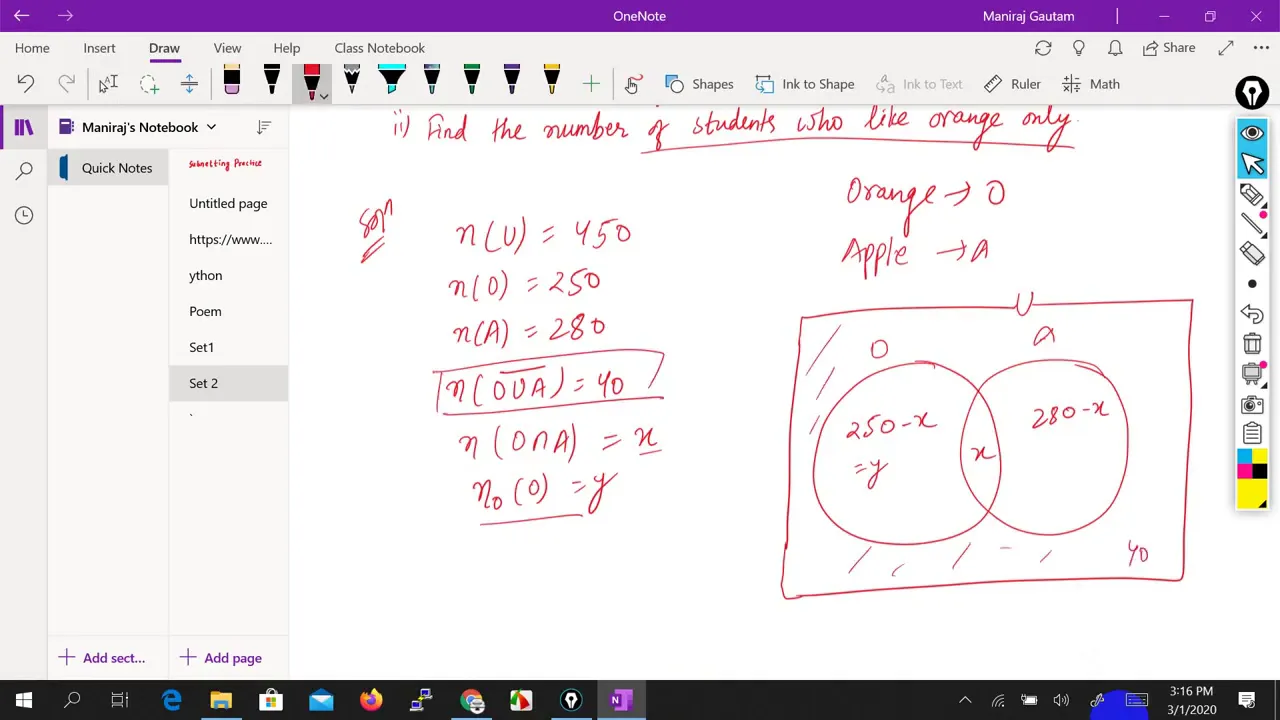 OneNote
Maniraj Gautam
Home Insert Draw View Help Class Notebook
Share
Shapes Ink to Shape Ink to Text Ruler Math
Maniraj's Notebook
Quick Notes
Subnetting Practice
Untitled page
https://www....
ython
Poem
Set1
Set 2
Add sect...
Add page
ii) Find the number of students who like orange only.
Orange → O
Apple → A
Solⁿ
n(U) = 450
n(O) = 250
n(A) = 280
n(O̅U̅A̅) = 40
n(O∩A) = x
n₀(O) = y
U
O A
250-x x 280-x
=y
40
3:16 PM
3/1/2020